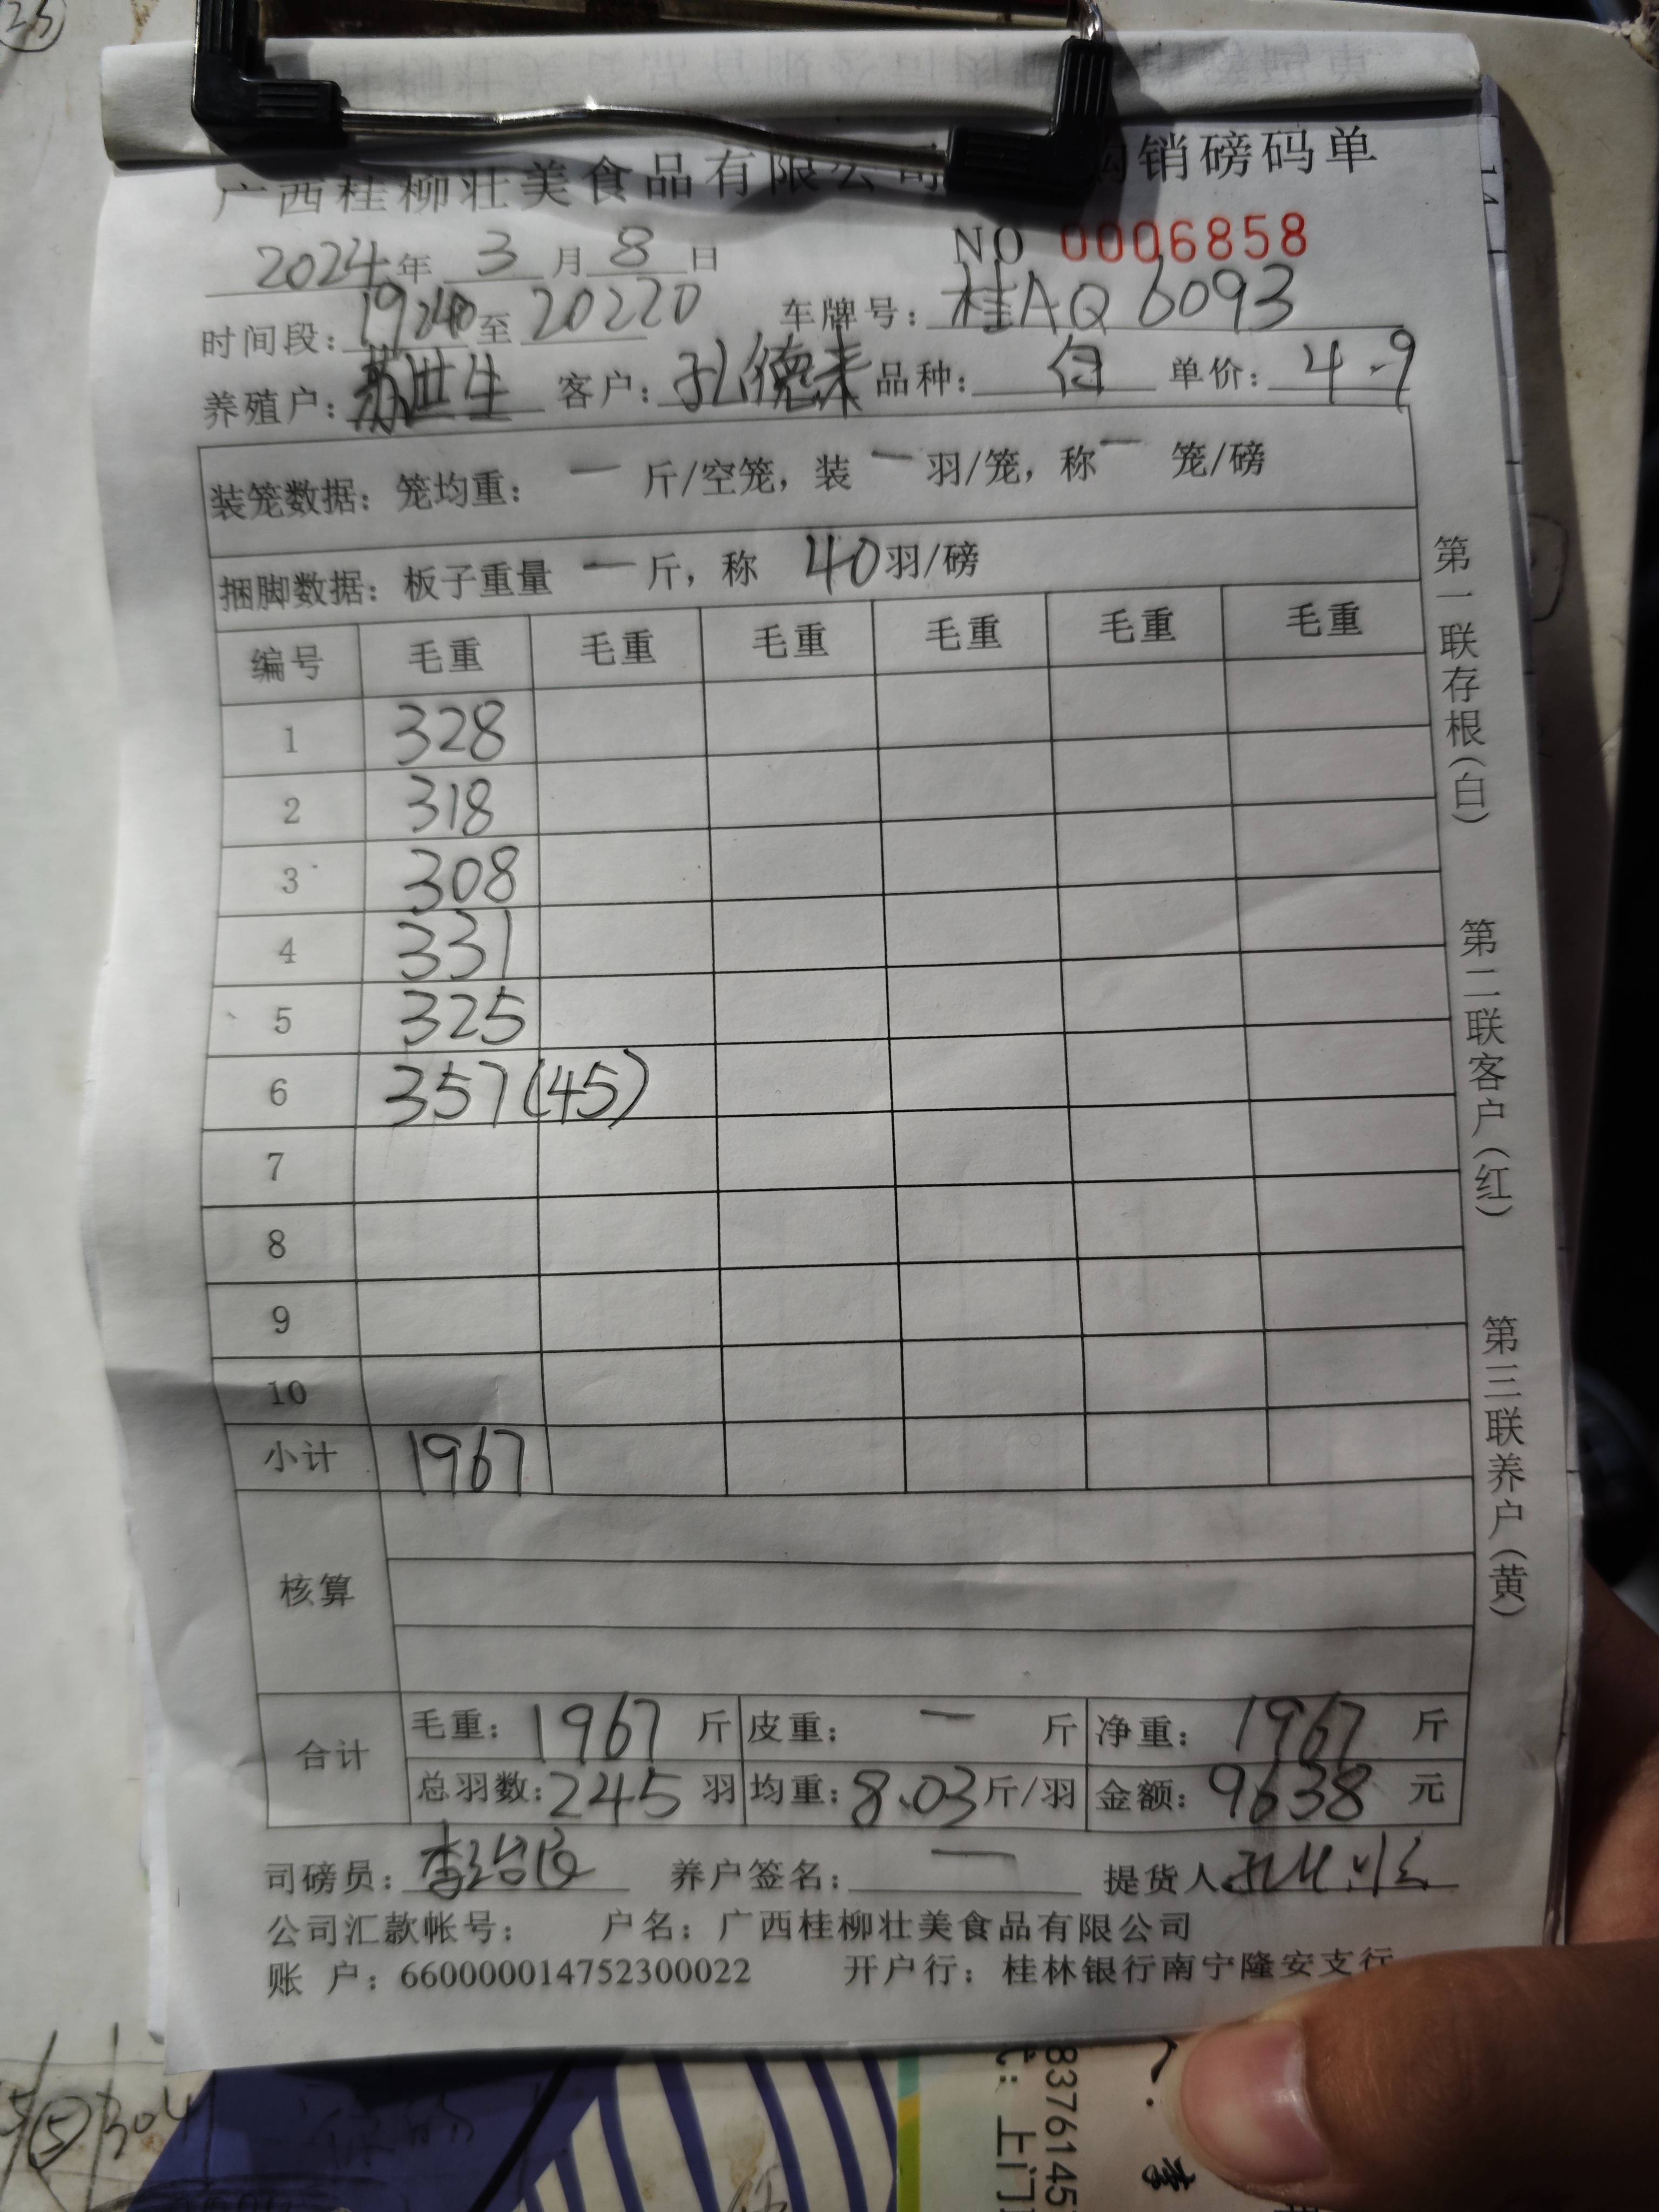 23
广西桂柳壮美食品有限公司 购销磅码单
2024年 3月 8日 NO 0006858
时间段: 19240 至 20220 车牌号: 桂AQ6093
养殖户: 苏世生 客户: 孔德来 品种: 白 单价: 4.9
装笼数据: 笼均重: 一 斤/空笼, 装 一 羽/笼, 称 一 笼/磅
捆脚数据: 板子重量 一 斤, 称 40 羽/磅
编号 毛重 毛重 毛重 毛重 毛重 毛重
1 328
2 318
3 308
4 331
5 325
6 357(45)
7
8
9
10
小计 1967
核算
合计 毛重: 1967 斤 皮重: 一 斤 净重: 1967 斤
总羽数: 245 羽 均重: 8.03 斤/羽 金额: 9638 元
司磅员: 养户签名: 一 提货人
公司汇款帐号: 户名: 广西桂柳壮美食品有限公司
账 户: 660000014752300022 开户行: 桂林银行南宁隆安支行
第一联存根(白)
第二联客户(红)
第三联养户(黄)
8376145
上门